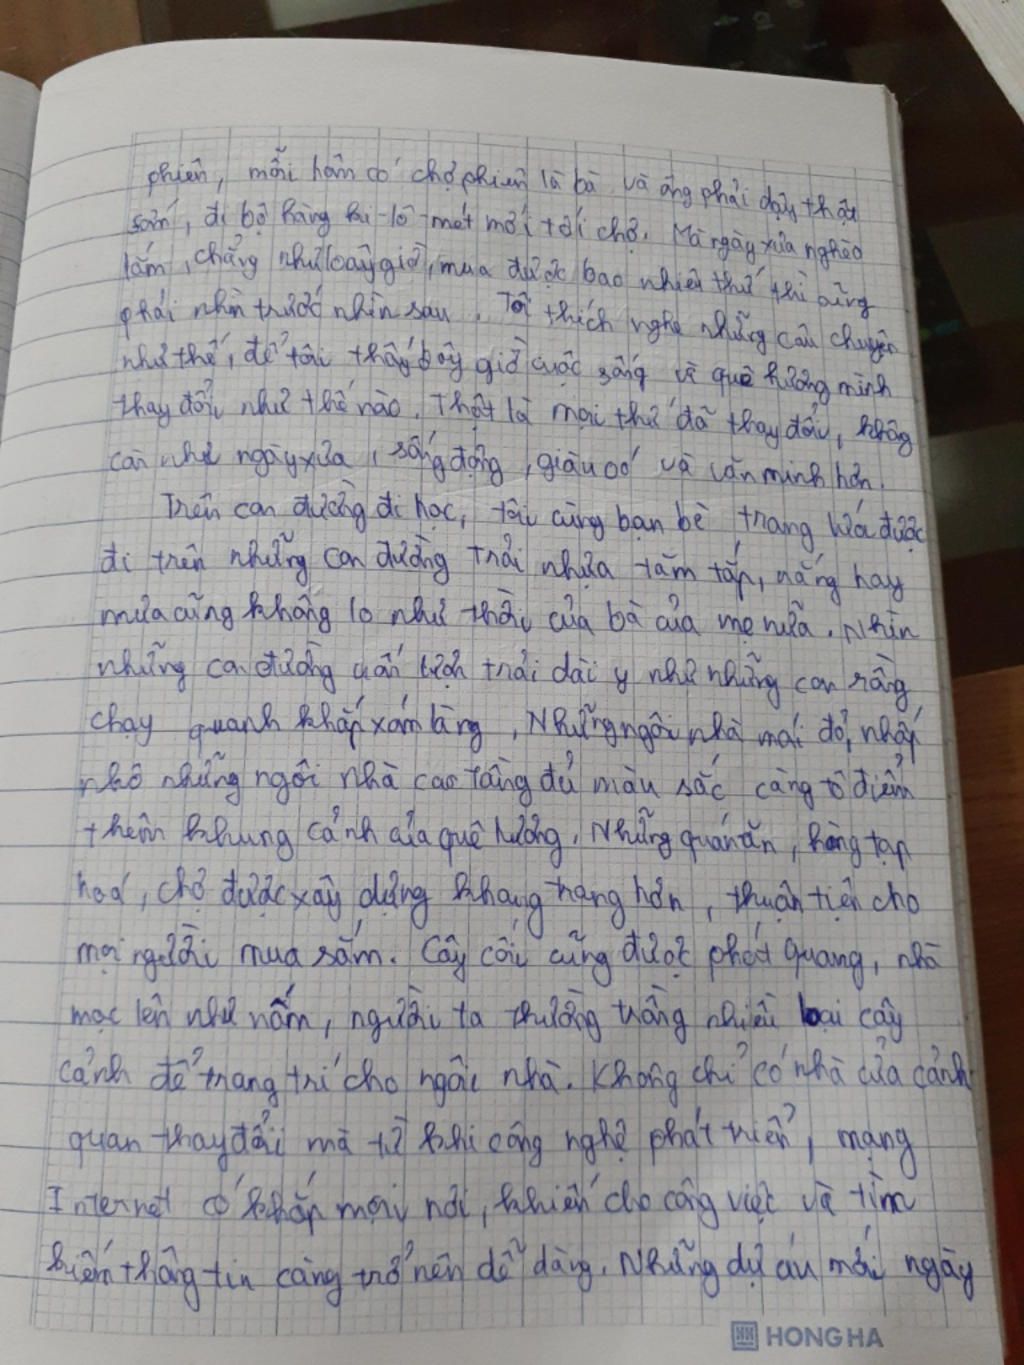 phiên, mỗi hôm có chợ phiên là bà và ông phải dậy thật
sớm, đi bộ hàng ki-lô-mét mới tới chợ. Mà ngày xửa nghèo
lắm, chẳng như bây giờ, mua được bao nhiêu thứ thì cũng
phải nhìn trước nhìn sau. Tôi thích nghe những câu chuyện
như thế, để tôi thấy bây giờ cuộc sống và quê hương mình
thay đổi như thế nào. Thật là mọi thứ đã thay đổi, không
còn như ngày xửa, sống động, giàu có và văn minh hơn.
Trên con đường đi học, tôi cùng bạn bè trang lứa được
đi trên những con đường trải nhựa tăm tắp, nắng hay
mưa cũng không lo như thời của bà của mẹ nữa. Nhìn
những con đường uấn lượn trải dài y như những con rồng
chạy quanh khắp xóm làng, Những ngôi nhà mái đỏ, nhấp
nhô những ngôi nhà cao tầng đủ màu sắc càng tô điểm
thêm khung cảnh của quê hương. Những quán ăn, hàng tạp
hoá, chợ được xây dựng khang trang hơn, thuận tiện cho
mọi người mua sắm. Cây cối cũng được phát quang, nhà
mọc lên như nấm, người ta thường trồng nhiều loại cây
cảnh để trang trí cho ngôi nhà. Không chỉ có nhà cửa cảnh
quan thay đổi mà từ khi công nghệ phát triển, mạng
Internet có khắp mọi nơi, khiến cho công việc và tìm
kiếm thông tin càng trở nên dễ dàng. Những dự án mới ngày
HONG HA